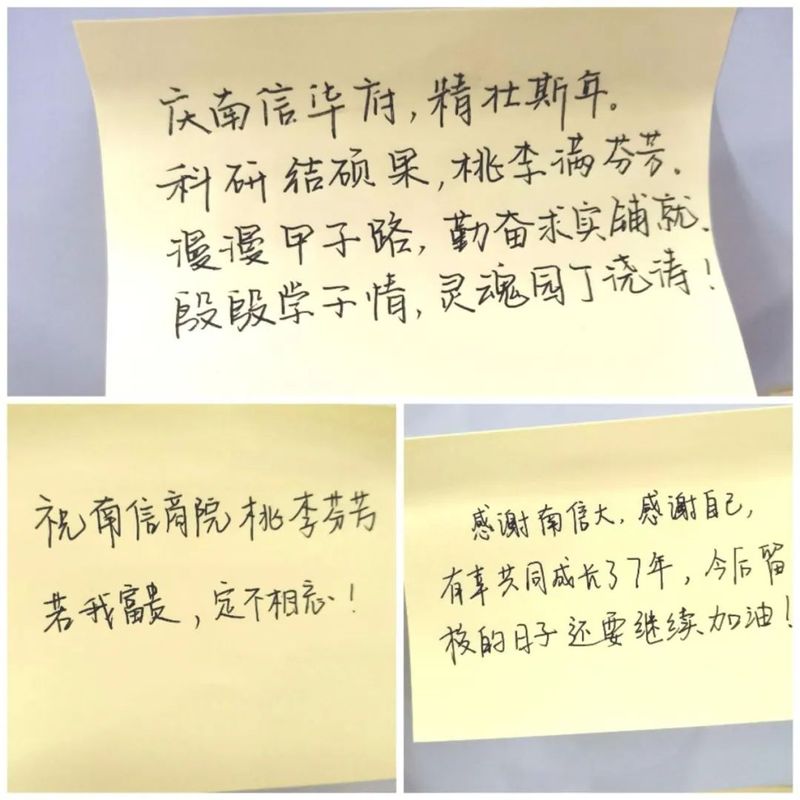 庆南信华府，精壮斯年。
科研结硕果，桃李满芬芳。
漫漫甲子路，勤奋求实铺就。
段段学子情，灵魂园丁浇涛！
祝南信商院桃李芬芳
若我富贵，定不相忘！
感谢南信大，感谢自己，
有幸共同成长了7年，今后留
校的日子还要继续加油！